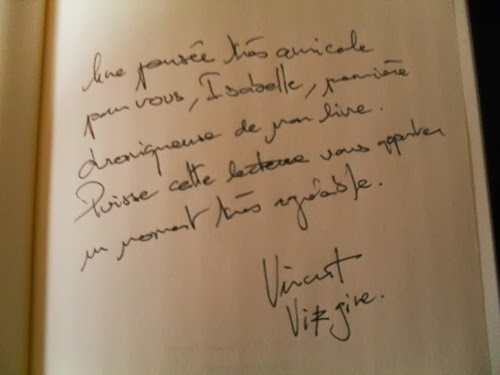 Une pensée très amicale
pour vous, Isabelle, première
chroniqueuse de mon livre.
Puisse cette lecture vous apporter
un moment très agréable.
Vincent
Virgine.